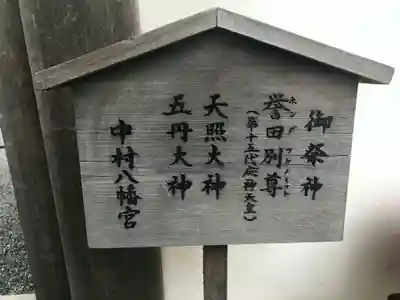 御祭神
誉田別尊
ホンダワケノミコト
(第十五代応神天皇)
天照大神
五丹大神
中村八幡宮